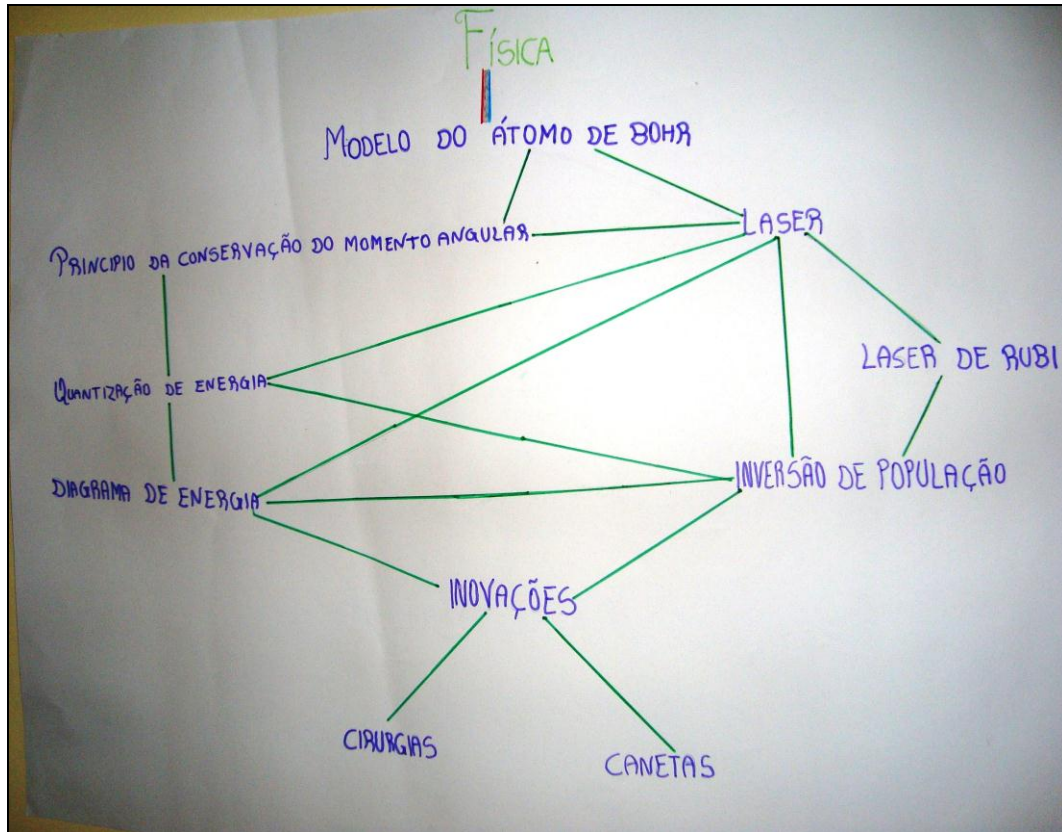 FÍSICA
MODELO DO ÁTOMO DE BOHR
LASER
PRINCIPIO DA CONSERVAÇÃO DO MOMENTO ANGULAR
LASER DE RUBI
QUANTIZAÇÃO DE ENERGIA
INVERSÃO DE POPULAÇÃO
DIAGRAMA DE ENERGIA
INOVAÇÕES
CIRURGIAS
CANETAS